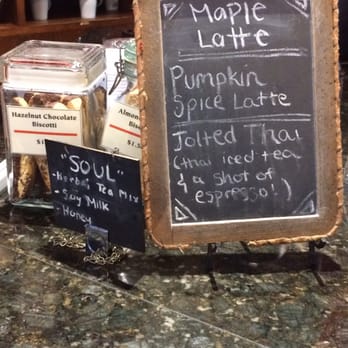 Maple
Latte
Pumpkin
Spice Latte
Jolted Thai
(thai iced tea
& a shot of
espresso!)
Hazelnut Chocolate
Biscotti
Almond
"SOUL"
- Herbal Tea Mix
- Soy Milk
- Honey